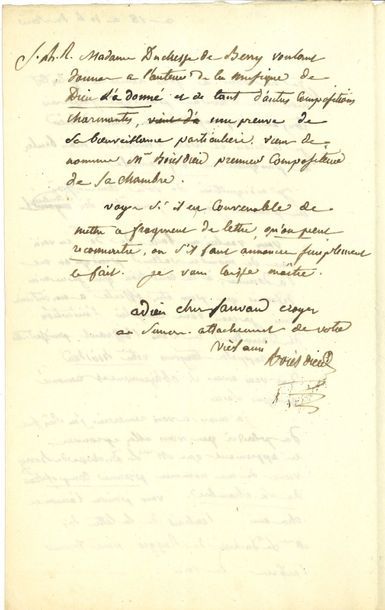 S. A. R. Madame Duchesse de Berry voulant
donner a l'auteur de la musique de
Dieu l'a donné et de tant d'autres compositions
charmantes, une preuve de
sa bienveillance particuliere, vient de
nommer Mr Boieldieu premier compositeur
de sa chambre.
voyez s'il est convenable de
mettre ce fragment de lettre, qu'on peut
reconnaitre, ou s'il faut annoncer simplement
le fait. je vous laisse maître.
adieu cher Sauvan croyez
au sincere attachement de votre
vieil ami
Boieldieu